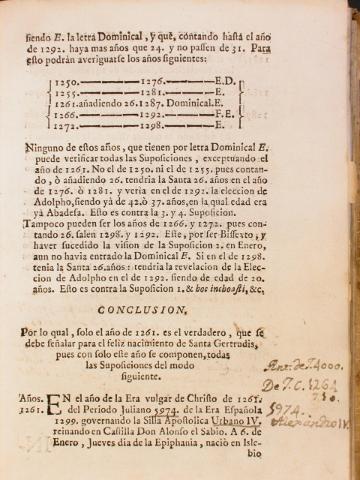 siendo E. la letra Dominical, y que, contando hasta el año
de 1292. haya mas años que 24. y no passen de 31. Para
esto podrán averiguarse los años siguientes:
1250.———1276.———E.D.
1255.———1281.———E.
1261.añadiendo 26.1287. Dominical.E.
1266.———1292.———F.E.
1272.———1298.———E.
Ninguno de estos años, que tienen por letra Dominical E.
puede verificar todas las Suposiciones, exceptuando el
año de 1261. No el de 1250. ni el de 1255. pues contan-
do, ò añadiendo 26. tendria la Santa 26. años en el año
de 1276. ò 1281. y veria en el de 1292. la eleccion de
Adolpho, siendo yá de 42. ò 37. años, en la qual edad era
yá Abadesa. Esto es contra la 3. y 4. Suposicion.
Tampoco pueden ser los años de 1266. y 1272. pues con-
tando 26. salen 1298. y 1292. Este, por ser Bissexto, y
haver sucedido la vision de la Suposicion 2. en Enero,
aun no havia entrado la Dominical E. Si en el de 1298.
tenia la Santa 26. años: tendria la revelacion de la Elec-
cion de Adolpho en el de 1292. siendo de edad de 20.
años. Esto es contra la Suposicion 1. & hoc inchoasti, &c.
CONCLUSION.
Por lo qual, solo el año de 1261. es el verdadero, que se
debe señalar para el feliz nacimiento de Santa Gertrudis,
pues con solo este año se componen, todas
las Suposiciones del modo
siguiente.
Años. EN el año de la Era vulgar de Christo de 1261.
1261. del Periodo Juliano 5974. de la Era Española
1299. governando la Silla Apostolica Urbano IV.
reinando en Castilla Don Alonso el Sabio. A 6. de
Enero, Jueves dia de la Epiphania, naciò en Isle-
bio
4000.
De J.C. 1261
5974.
Alexandro IV.